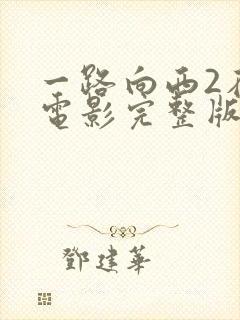 一路向西2在
電影完整版
鄧建華